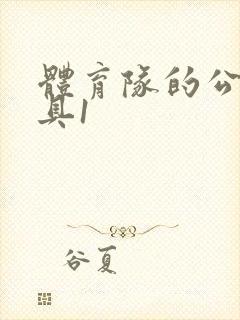 體育隊的公
具1
谷夏